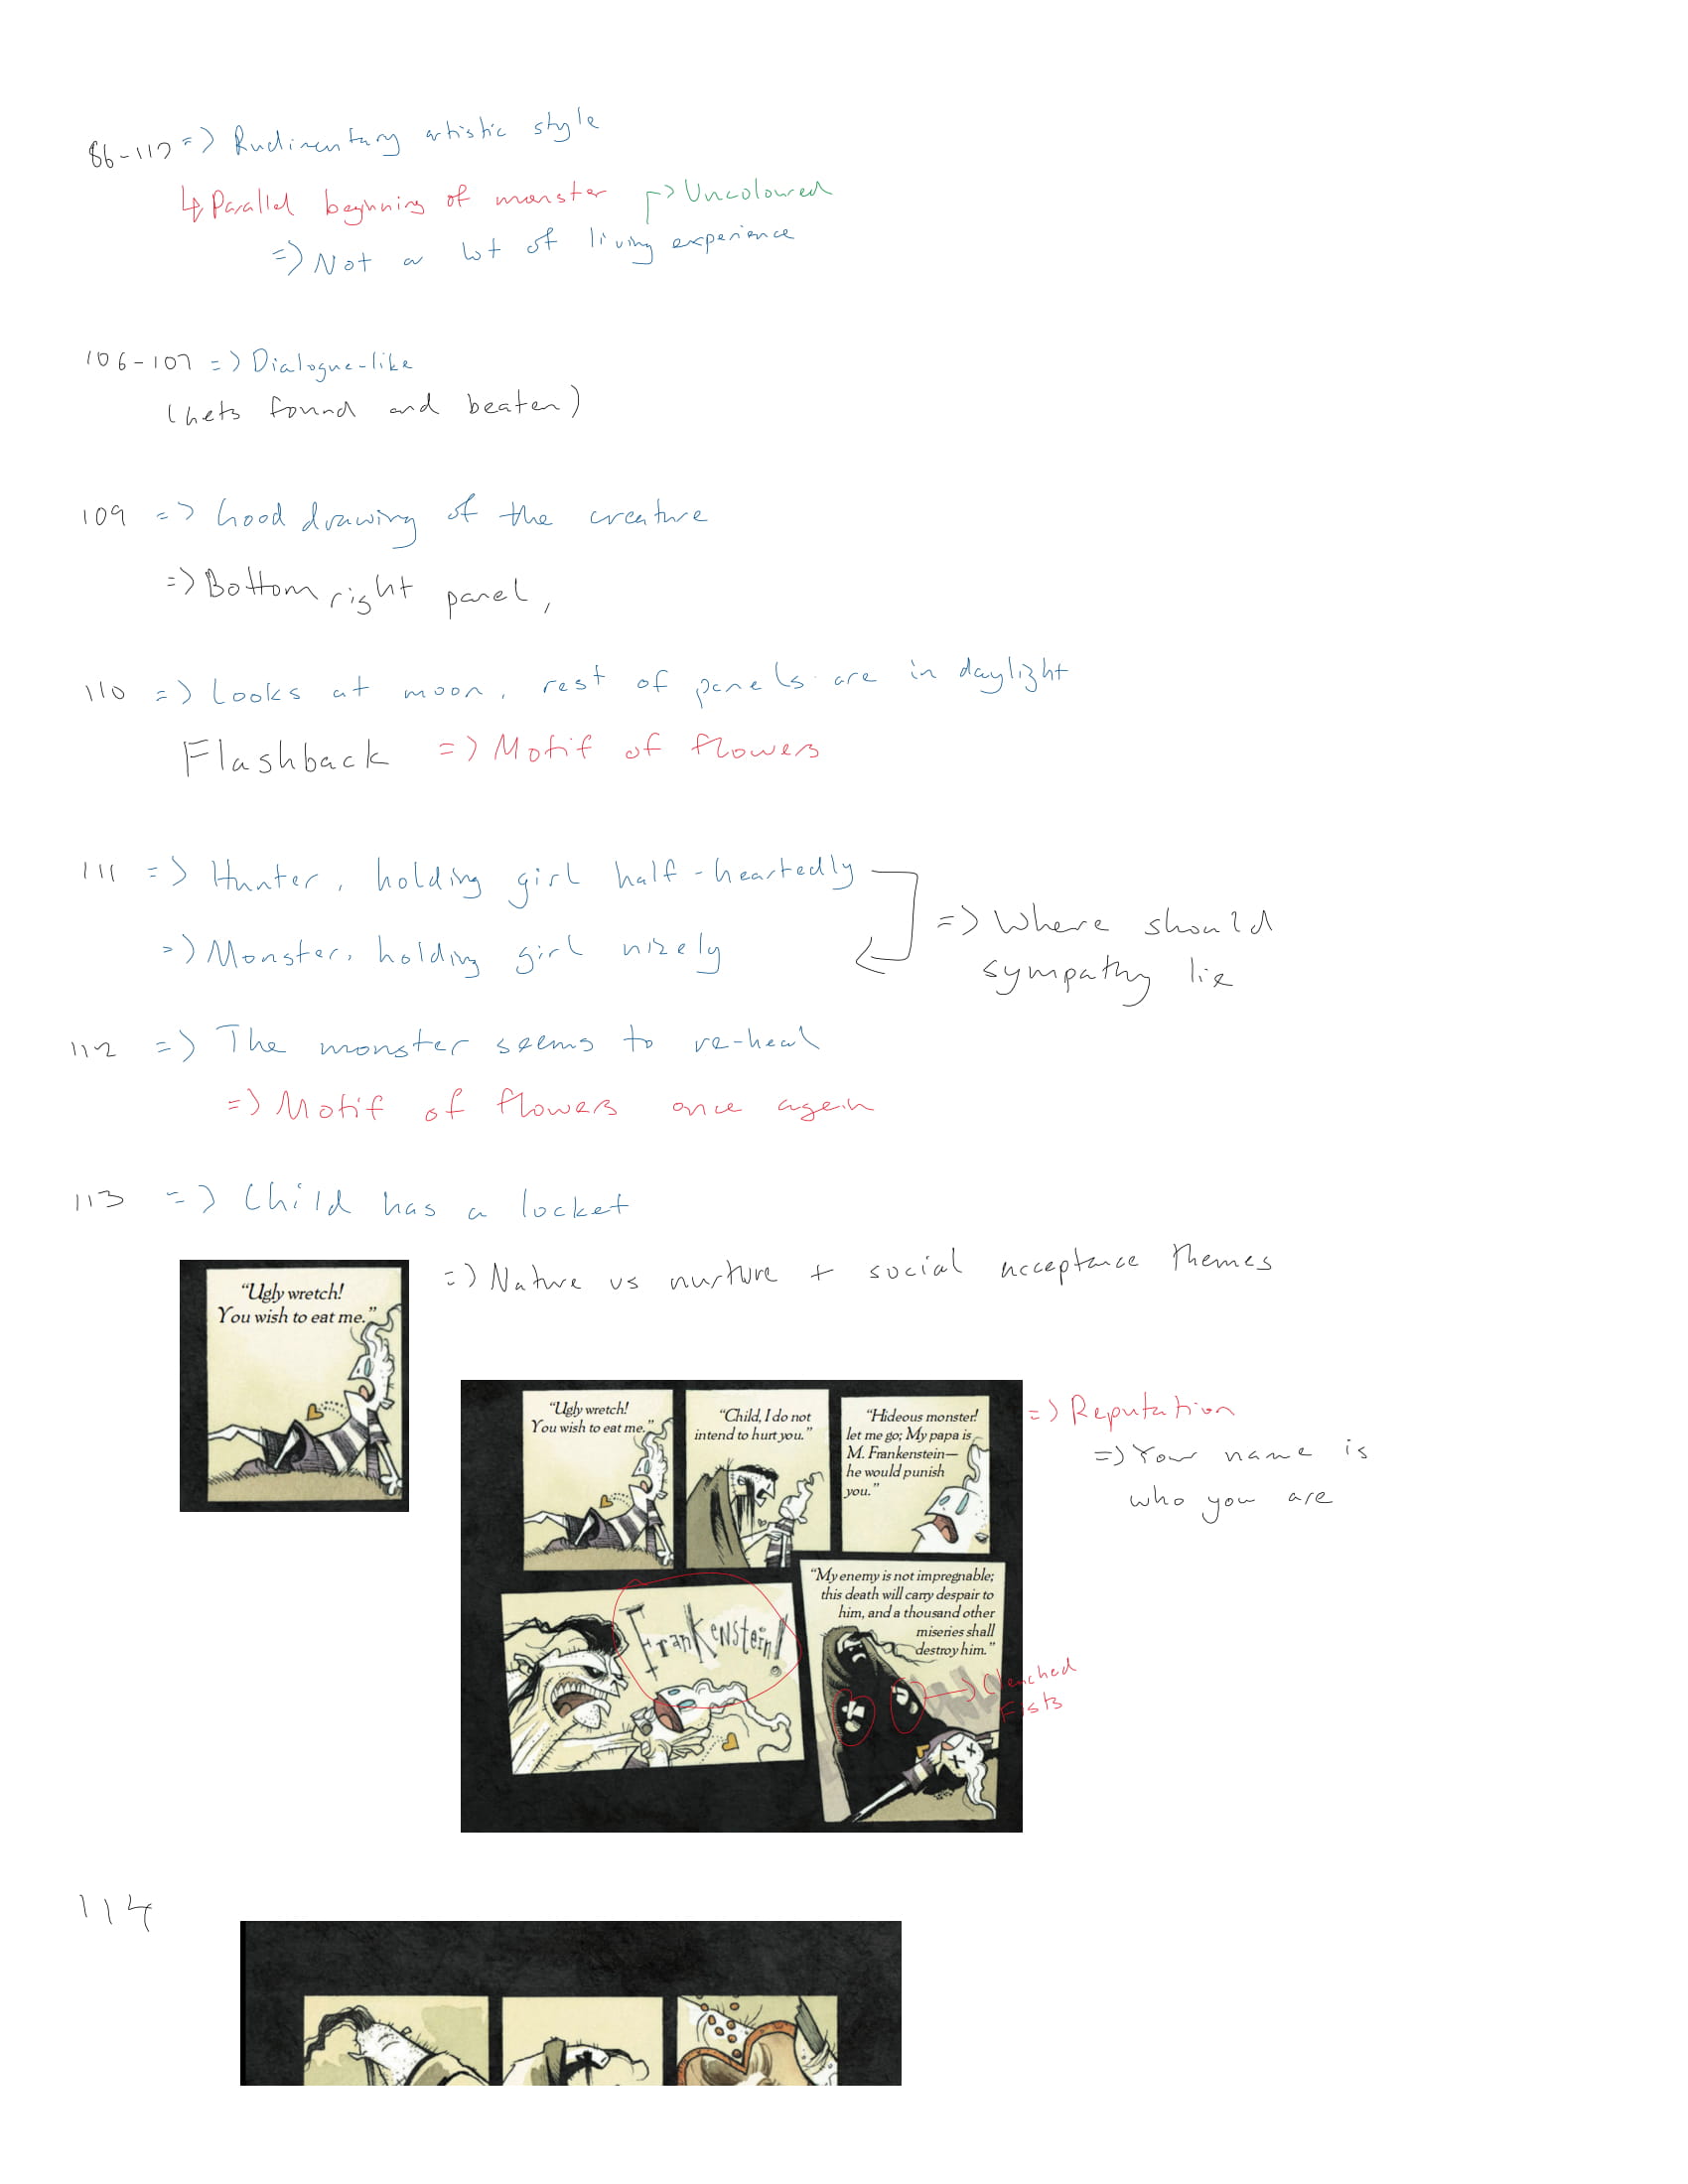 86-117 => Rudimentary artistic style
↳ Parallel beginning of monster ↱> Uncoloured
=> Not a lot of living experience
106-107 => Dialogue-like
(Gets found and beaten)
109 => Good drawing of the creature
=> Bottom right panel,
110 => Looks at moon, rest of panels are in daylight
Flashback => Motif of flowers
111 => Hunter, holding girl half-heartedly
=> Monster, holding girl nicely
=> Where should
sympathy lie
112 => The monster seems to re-heal
=> Motif of flowers once again
113 => Child has a locket
=> Nature vs nurture + social acceptance themes
“Ugly wretch!
You wish to eat me.”
“Ugly wretch!
You wish to eat me.”
“Child, I do not
intend to hurt you.”
“Hideous monster!
let me go; My papa is
M. Frankenstein—
he would punish
you.”
=> Reputation
=> Your name is
who you are
Frankenstein!
“My enemy is not impregnable;
this death will carry despair to
him, and a thousand other
miseries shall
destroy him.”
-> Clenched
Fists
114